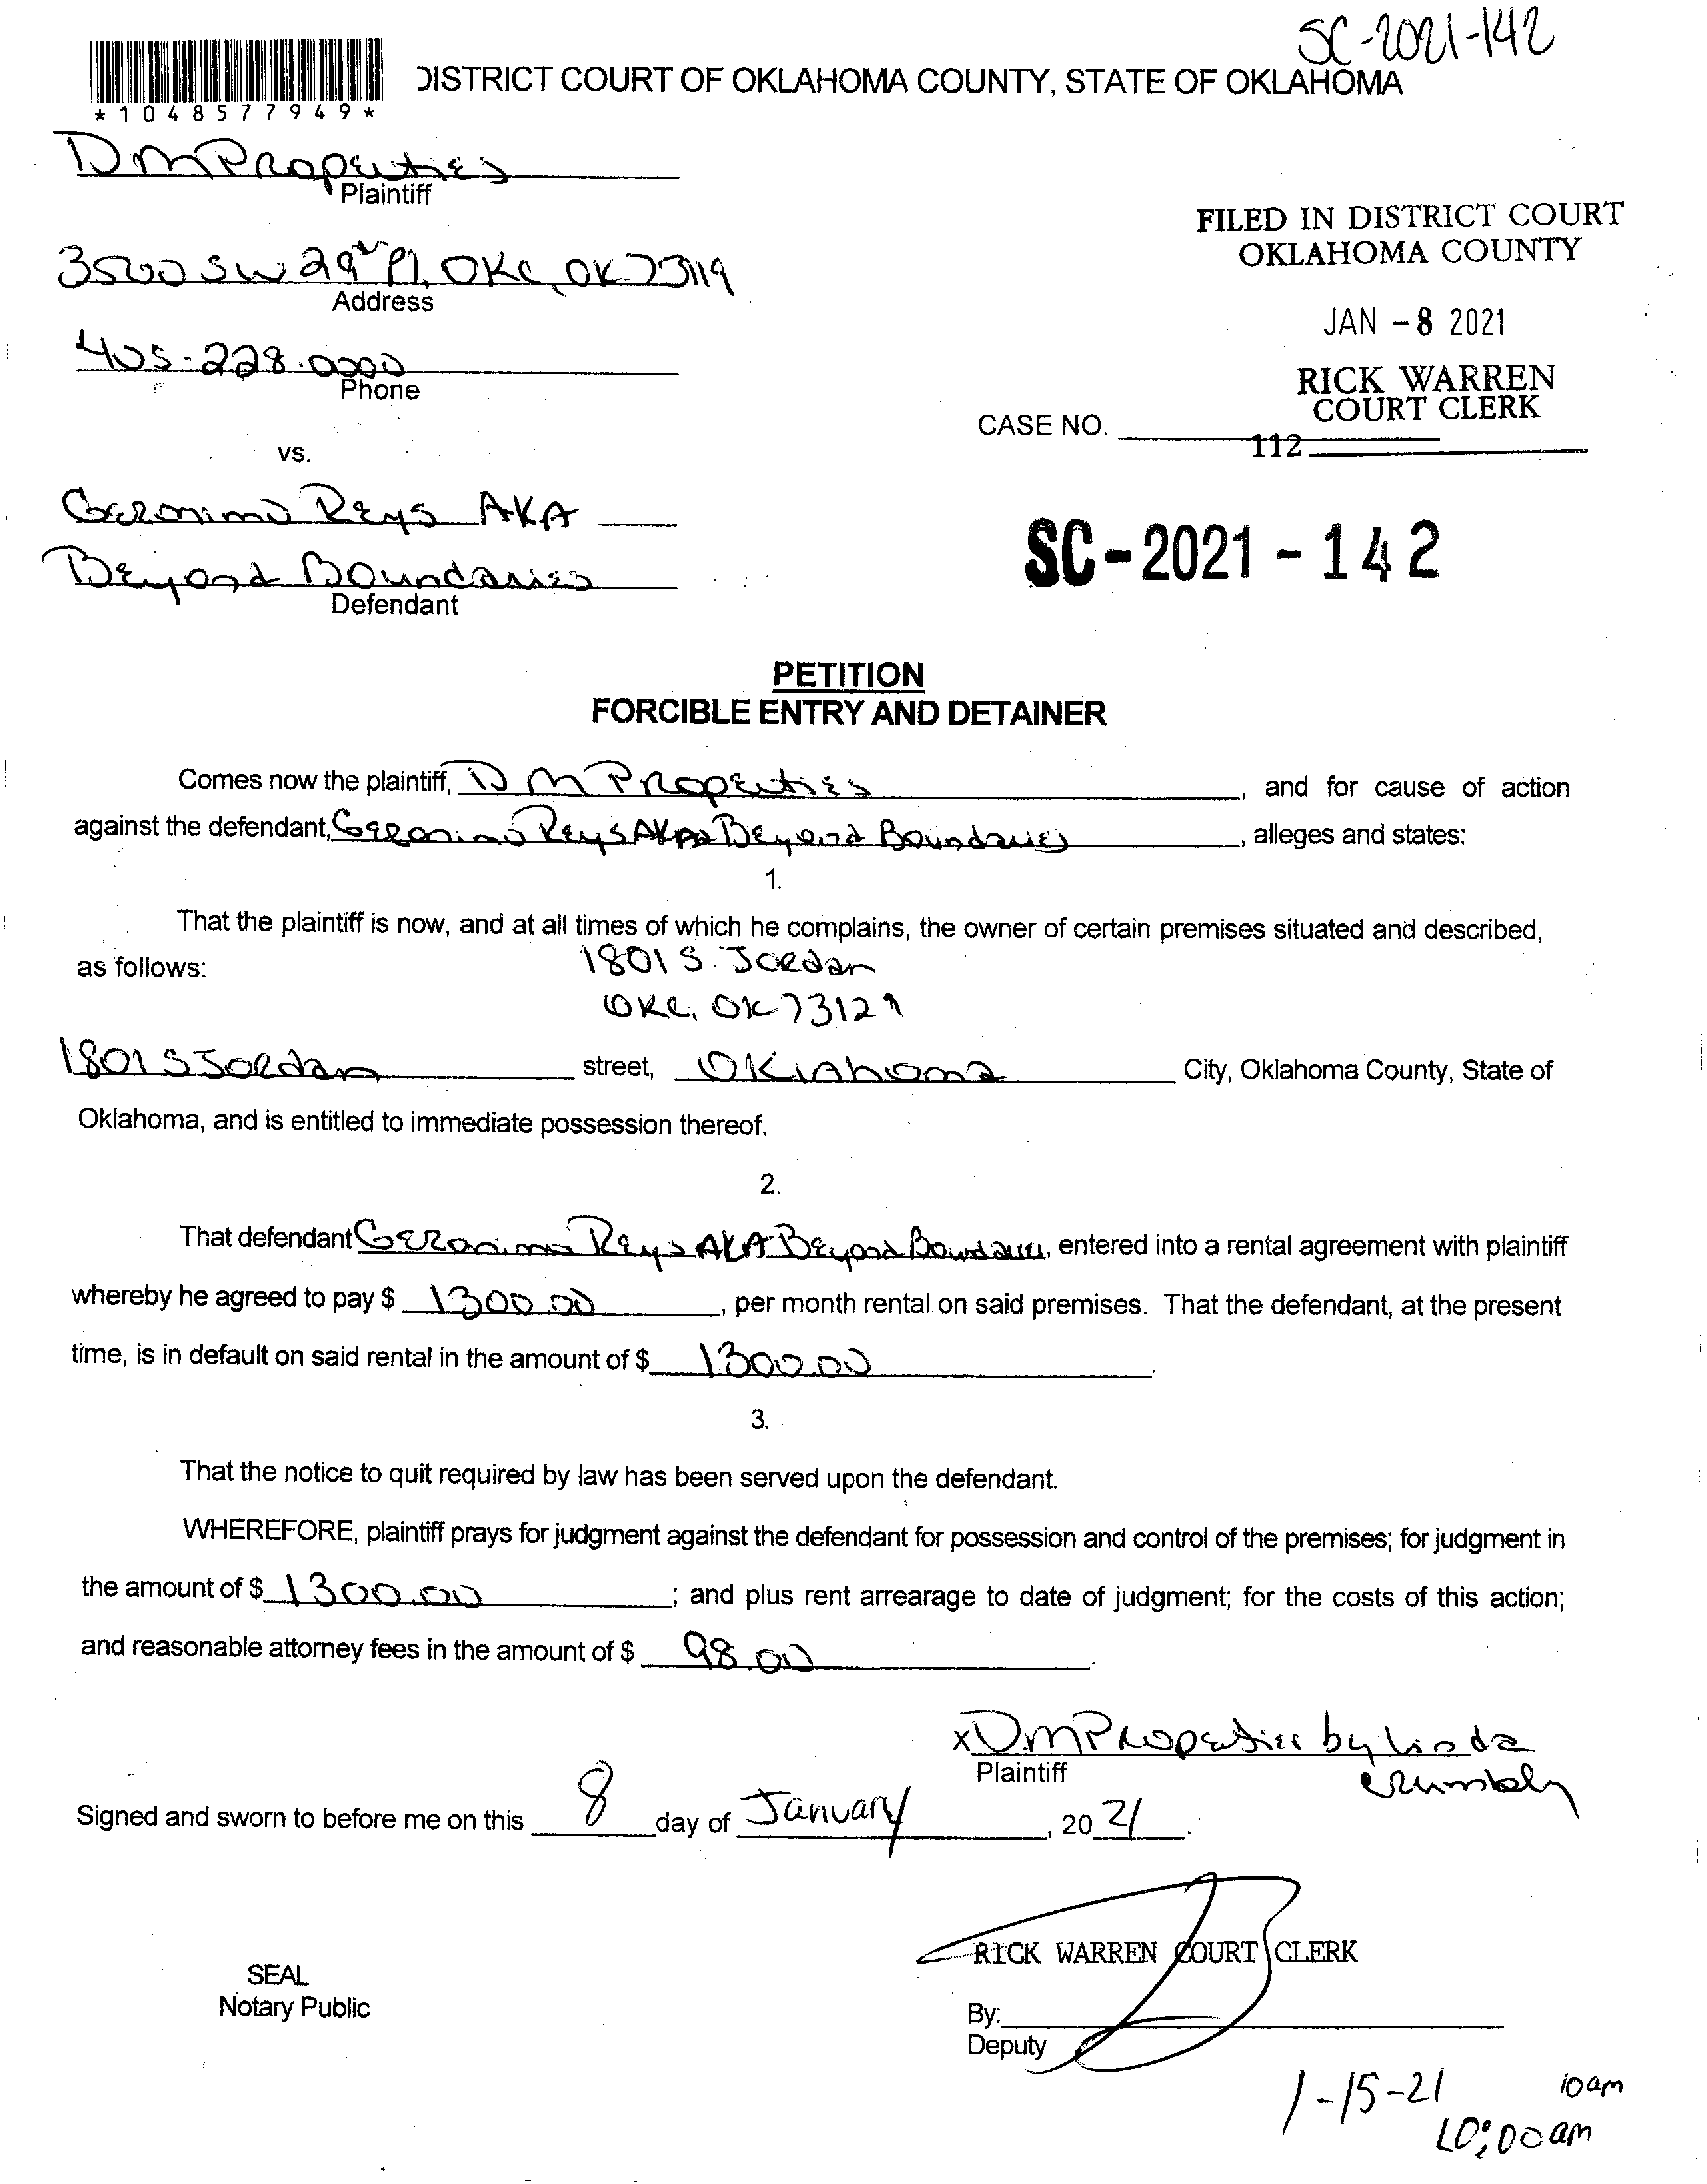 SC-2021-142
DISTRICT COURT OF OKLAHOMA COUNTY, STATE OF OKLAHOMA
*1048577949*
DM Properties
Plaintiff
3500 SW 29th Pl, OKC, OK 73119
Address
405-228-0000
Phone
vs.
FILED IN DISTRICT COURT
OKLAHOMA COUNTY
JAN - 8 2021
RICK WARREN
COURT CLERK
CASE NO.
112
Geronimo Reys AKA
Beyond Boundaries
Defendant
SC-2021-142
PETITION
FORCIBLE ENTRY AND DETAINER
Comes now the plaintiff, DM Properties, and for cause of action
against the defendant, Geronimo Reys AKA Beyond Boundaries, alleges and states:
1.
That the plaintiff is now, and at all times of which he complains, the owner of certain premises situated and described,
as follows: 1801 S. Jordan
OKC, OK 73129
1801 S Jordan street, Oklahoma City, Oklahoma County, State of
Oklahoma, and is entitled to immediate possession thereof.
2.
That defendant Geronimo Reys AKA Beyond Boundaries, entered into a rental agreement with plaintiff
whereby he agreed to pay $ 1300.00, per month rental on said premises. That the defendant, at the present
time, is in default on said rental in the amount of $ 1300.00.
3.
That the notice to quit required by law has been served upon the defendant.
WHEREFORE, plaintiff prays for judgment against the defendant for possession and control of the premises; for judgment in
the amount of $ 1300.00; and plus rent arrearage to date of judgment; for the costs of this action;
and reasonable attorney fees in the amount of $ 98.00.
x DM Properties by Linda
Crumbly
Plaintiff
Signed and sworn to before me on this 8 day of January, 2021.
RICK WARREN COURT CLERK
SEAL
Notary Public
By:
Deputy
1-15-21 10am
10:00am